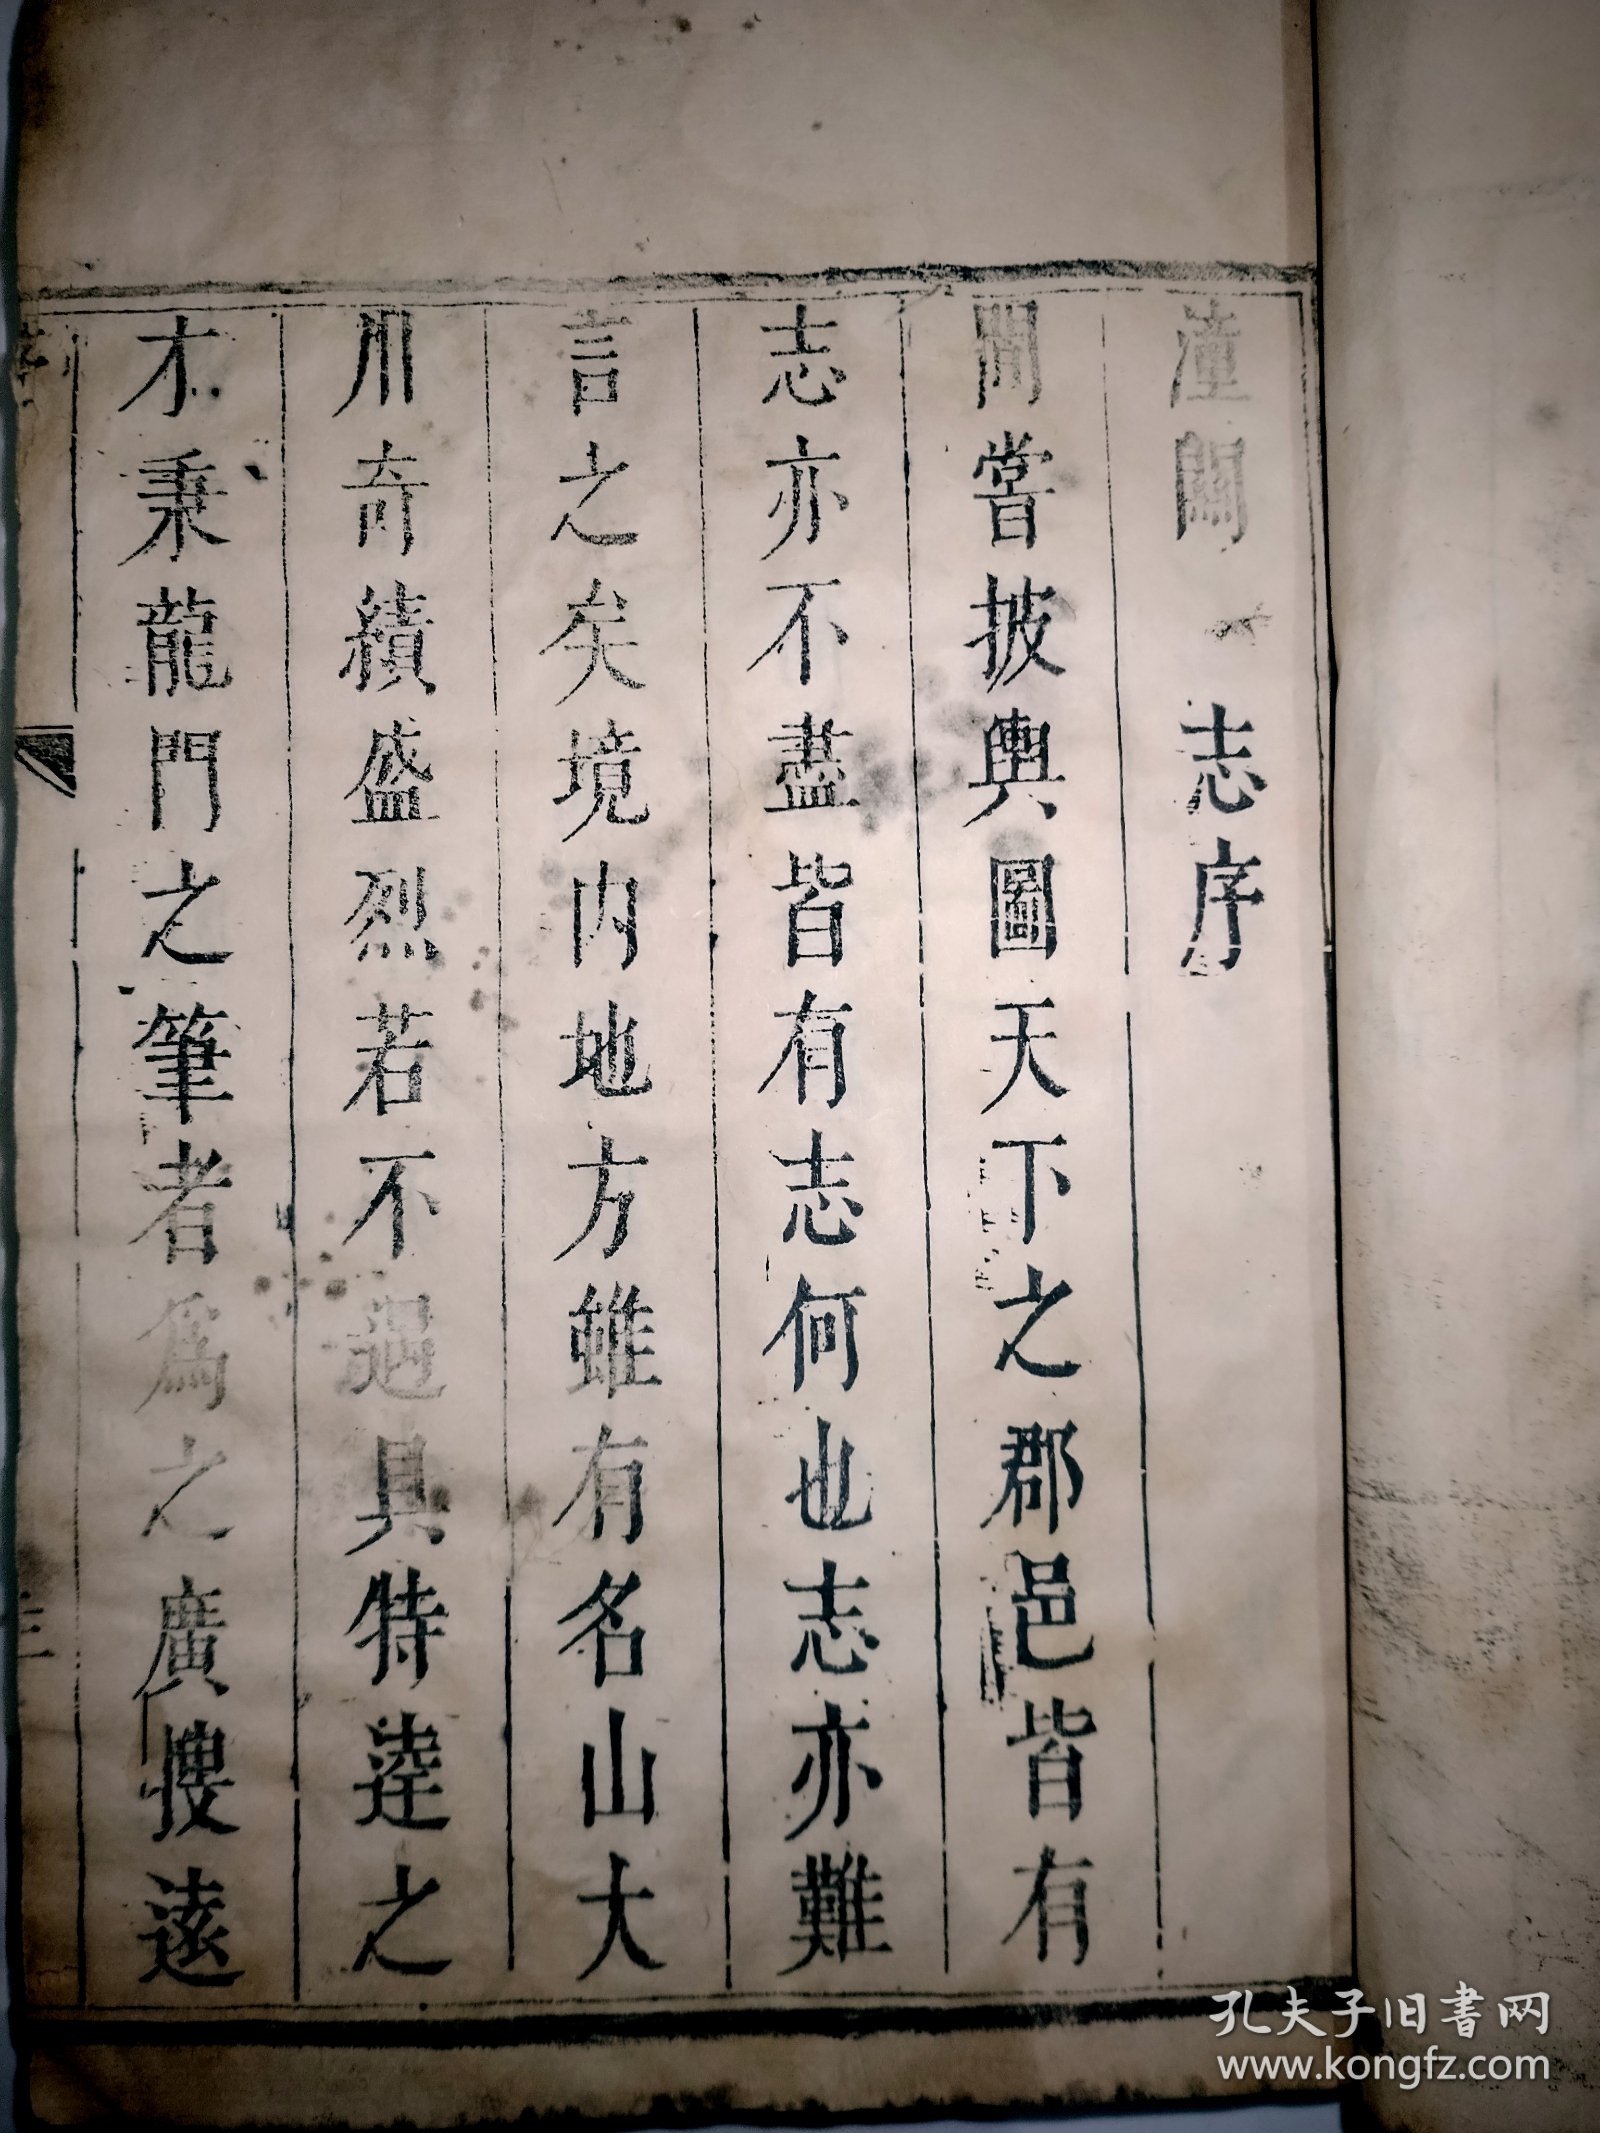 潼關 志序
間嘗披輿圖天下之郡邑皆有
志亦不盡皆有志何也志亦難
言之矣境内地方雖有名山大
川奇績盛烈若不遇具特達之
才秉龍門之筆者為之廣搜遠
三
孔夫子旧书网
www.kongfz.com